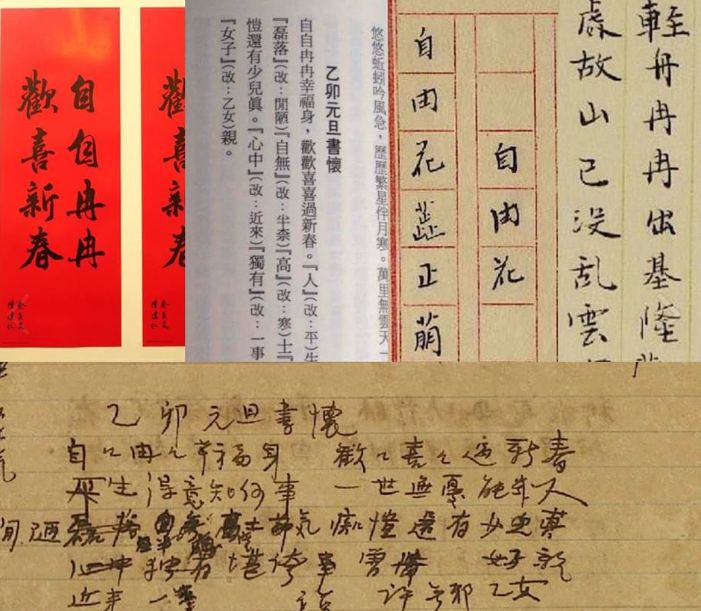 自自冉冉
歡喜新春
歡喜新春
悠悠蚯蚓吟風急，歷歷繁星伴月寒。萬里無雲天一
乙卯元旦書懷
自自冉冉幸福身，歡歡喜喜過新春。『人』(改：平)生
『磊落』(改：閒陋)『自無』(改：半柰)『高』(改：寒)士『
愷還有少兒眞。『心中』(改：近來)『獨有』(改：一事
『女子』(改：乙女)親。
輕舟冉冉出基隆
處故山已没乱雲
自由花
自由花蕋正萌
乙卯元旦書懷
自々由々幸福身 歡々喜々過新春
平生得意知何事 一世無憂能
氣 痴愷還有少兒真
近來 乙女